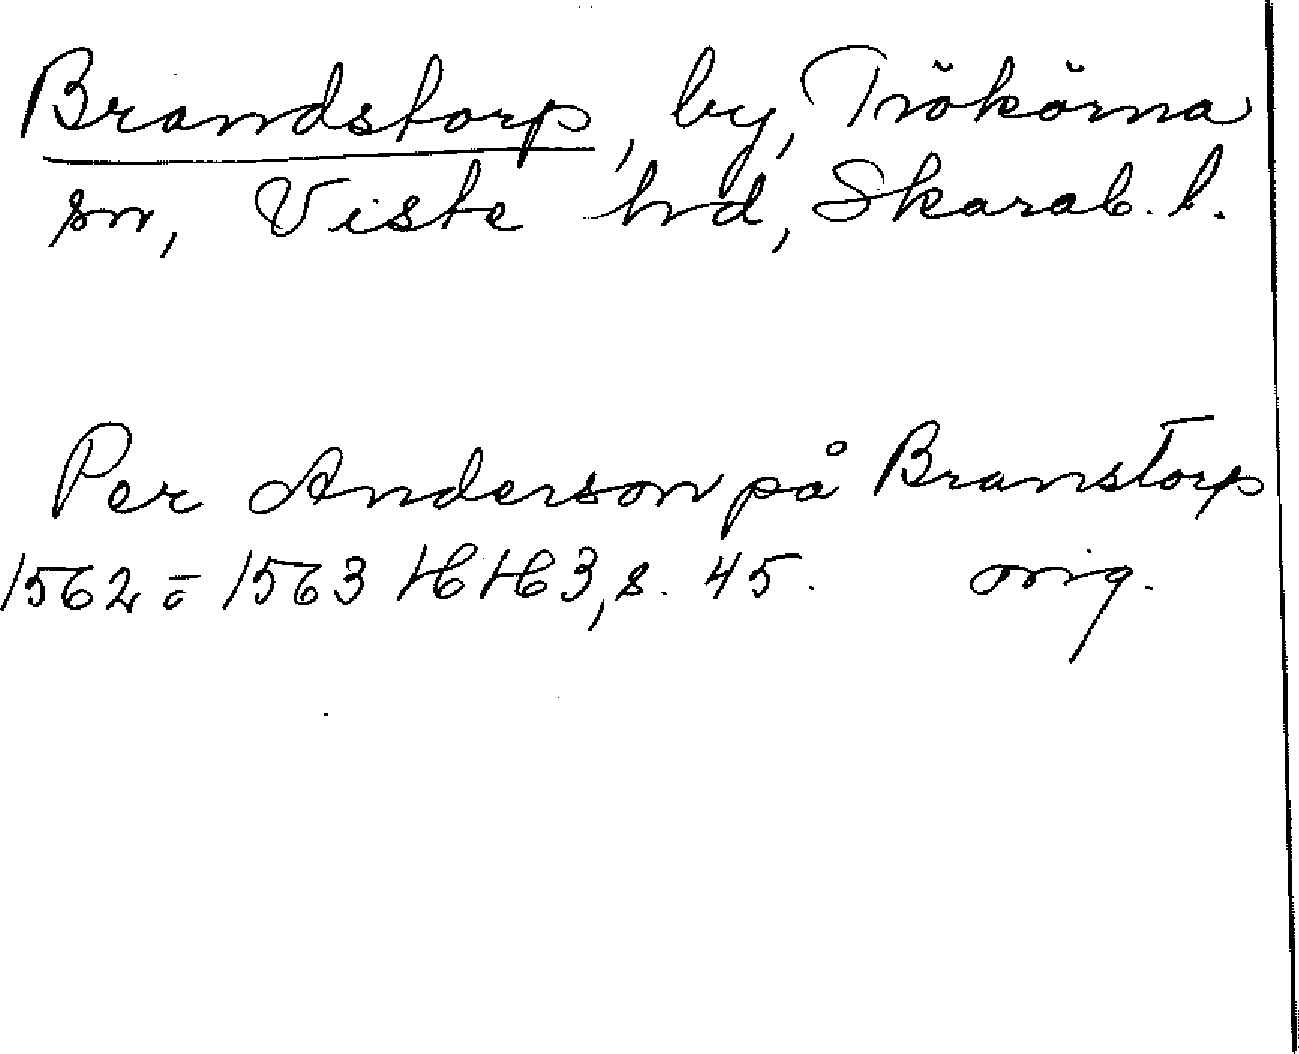 Brandstorp, by, Trökörna
sn, Viste hrd, Skarab. l.
Per Anderson på Branstorp
1562 = 1563 HH3, s. 45. orig.